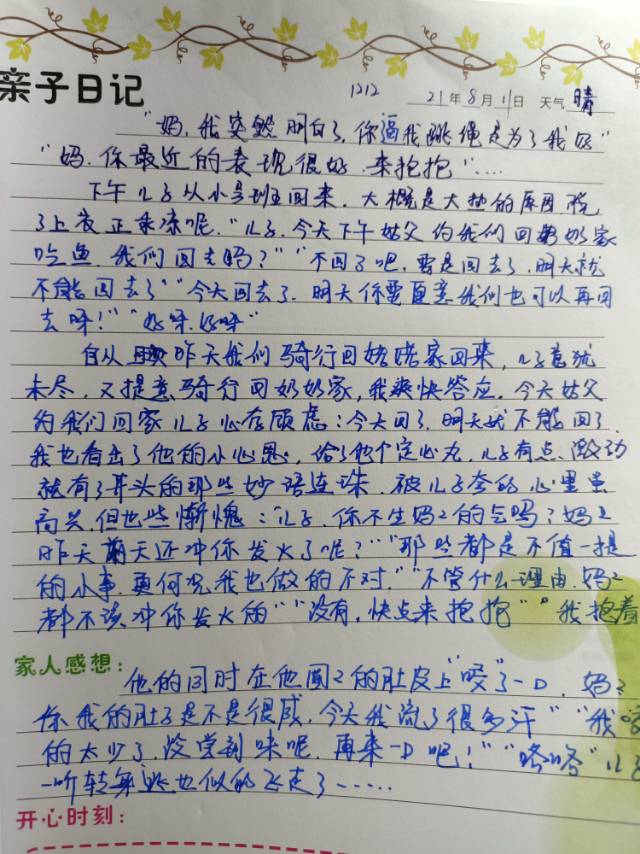 亲子日记
1212
21年8月11日 天气 晴
"妈,我突然明白了,你逼我跳绳是为了我好"
"妈,你最近的表现很好,来抱抱"……
下午儿子从小号班回来,大概是大热的原因,脱
了上衣正乘凉呢,"儿子,今天下午姑父约我们回奶奶家
吃鱼,我们回去吗?""不回了吧,要是回去了,明天就
不能回去了""今天回去了,明天你要愿意我们也可以再回
去呀!""好呀,好呀"
自从昨天我们骑行回姥姥家回来,儿子意犹
未尽,又提意骑行回奶奶家,我爽快答应,今天姑父
约我们回家儿子心存顾虑:今天回了,明天就不能回了,
我也看出了他的小心思,给了他个定心丸,儿子有点激动
就有了开头的那些妙语连珠,被儿子夸的心里虽
高兴,但也些惭愧:"儿子,你不生妈妈的气吗?妈妈
昨天前天还冲你发火了呢?""那些都是不值一提
的小事,更何况我也做的不对,""不管什么理由,妈妈
都不该冲你发火的""没有,快点来抱抱"我抱着
家人感想:
他的同时在他圆圆的肚皮上"咬"了一口,妈妈
你我的肚子是不是很咸,今天我流了很多汗""我
的太少了,没尝到味呢,再来一口吧!""咯咯"儿子
一听转身逃也似的飞走了……
开心时刻: